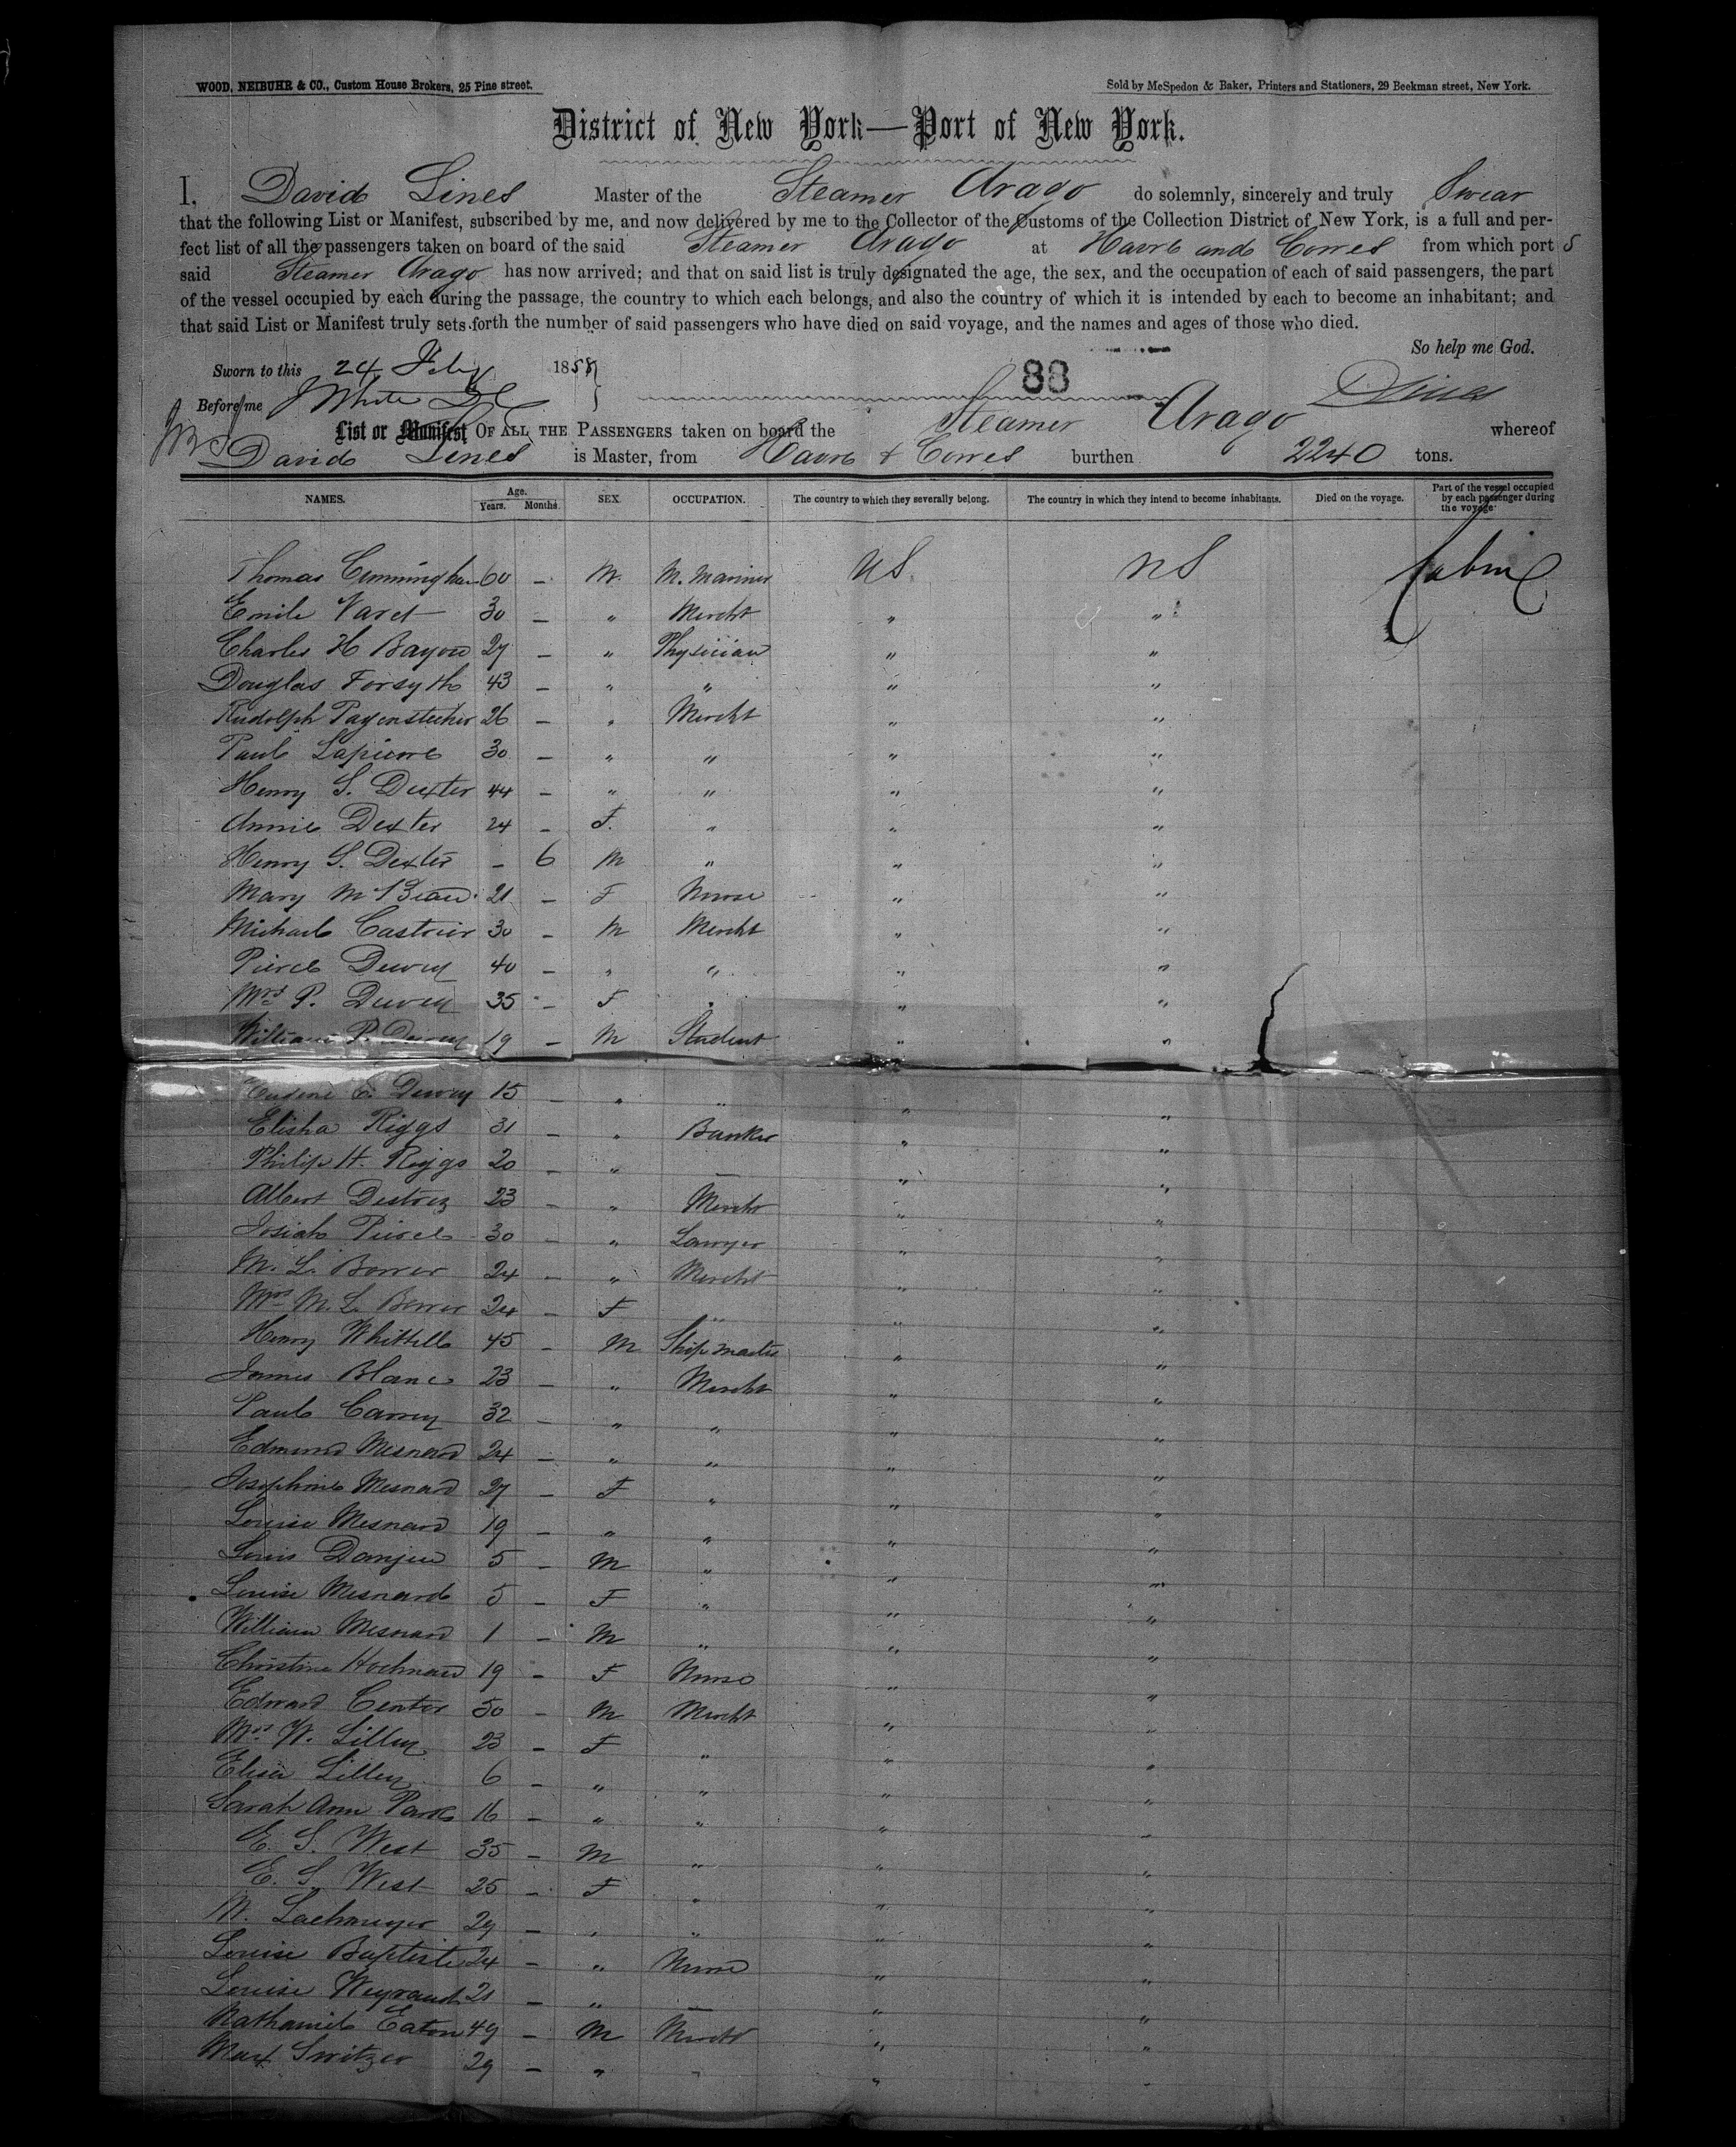 WOOD, NEIBUHR & CO., Custom House Brokers, 25 Pine street.
Sold by McSpedon & Baker, Printers and Stationers, 29 Beekman street, New York.
District of New York—Port of New York.
I, David Lines Master of the Steamer Arago do solemnly, sincerely and truly Swear
that the following List or Manifest, subscribed by me, and now delivered by me to the Collector of the Customs of the Collection District of New York, is a full and per-
fect list of all the passengers taken on board of the said Steamer Arago at Havre and Cowes from which port s
said Steamer Arago has now arrived; and that on said list is truly designated the age, the sex, and the occupation of each of said passengers, the part
of the vessel occupied by each during the passage, the country to which each belongs, and also the country of which it is intended by each to become an inhabitant; and
that said List or Manifest truly sets forth the number of said passengers who have died on said voyage, and the names and ages of those who died.
So help me God.
Sworn to this 24 Feby 1858
88
Before me J White DC
D Lines
List or Manifest OF ALL THE PASSENGERS taken on board the Steamer Arago whereof
David Lines is Master, from Havre & Cowes burthen 2240 tons.
NAMES. Age. Years. Months. SEX. OCCUPATION. The country to which they severally belong. The country in which they intend to become inhabitants. Died on the voyage. Part of the vessel occupied by each passenger during the voyage.
Thomas Cunningham 60 - M. M. Mariner US US Cabin
Emile Varet 30 - " Mercht " "
Charles H Bayou 27 - " Physician " "
Douglas Forsyth 43 - " " " "
Rudolph Pagenstecher 26 - " Mercht " "
Paul Lapierre 30 - " " " "
Henry S. Dexter 44 - " " " "
Annie Dexter 24 - F. " " "
Henry S. Dexter - 6 M " " "
Mary McBean 21 - F Nurse " "
Michael Castrier 30 - M Mercht " "
Pierce Dewey 40 - " " " "
Mrs P. Dewey 35 - F " " "
William P. Dewey 19 - M Student " "
Eugene C. Dewey 15 - " " " "
Elisha Riggs 31 - " Banker " "
Philip H. Riggs 20 - " — " "
Albert Destrez 23 - " Mercht " "
Josiah Pierce 30 - " Lawyer " "
M. L. Borrer 24 - " Mercht " "
Mrs M. L. Borrer 24 - F " " "
Henry Whittell 45 - M Ship master " "
James Blanc 23 - " Mercht " "
Paul Carrey 32 - " " " "
Edmund Mesnard 24 - " " " "
Josephine Mesnard 27 - F " " "
Louise Mesnard 19 - " " " "
Louis Danjeu 5 - M " " "
Louise Mesnard 5 - F " " "
William Mesnard 1 - M " " "
Christine Hochnard 19 - F Nurse " "
Edward Center 50 - M Mercht " "
Mrs W. Lilley 23 - F " " "
Elisa Lilley 6 - " " " "
Sarah Ann Park 16 - " " " "
E. S. West 35 - M " " "
E. S. West 25 - F " " "
W. Lachmeyer 29 - " " " "
Louise Baptiste 24 - " Nurse " "
Louise Weyrauch 21 - " — " "
Nathaniel Eaton 49 - M Mercht " "
Max Switzer 29 - " " " "